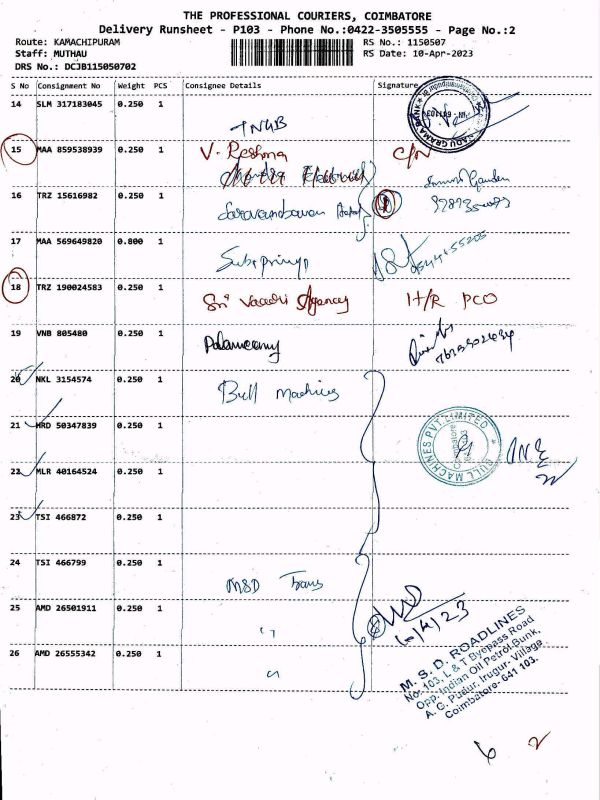 THE PROFESSIONAL COURIERS, COIMBATORE
Delivery Runsheet - P103 - Phone No.:0422-3505555 - Page No.:2
Route: KAMACHIPURAM RS No.: 1150507
Staff: MUTHAU RS Date: 10-Apr-2023
DRS No.: DCJB115050702
S No Consignment No Weight PCS Consignee Details Signature
14 SLM 317183045 0.250 1 TNGB
15 MAA 859538939 0.250 1 V. Reshma C/N
16 TRZ 15616982 0.250 1
17 MAA 569649820 0.800 1
18 TRZ 190024583 0.250 1 Sri Vaari Agency I+/R PCO
19 VNB 805480 0.250 1
20 NKL 3154574 0.250 1 Bull Machines
21 HRD 50347839 0.250 1
22 MLR 40164524 0.250 1
23 TSI 466872 0.250 1
BULL MACHINES PVT. LIMITED
Coimbatore
24 TSI 466799 0.250 1 MSD Trans
25 AMD 26501911 0.250 1 "
26 AMD 26555342 0.250 1 "
M. S. D. ROADLINES
No. 103, L & T Byepass Road
Opp. Indian Oil Petrol Bunk,
A. G. Pudur, Irugur- Village
Coimbatore- 641 103.
6 2